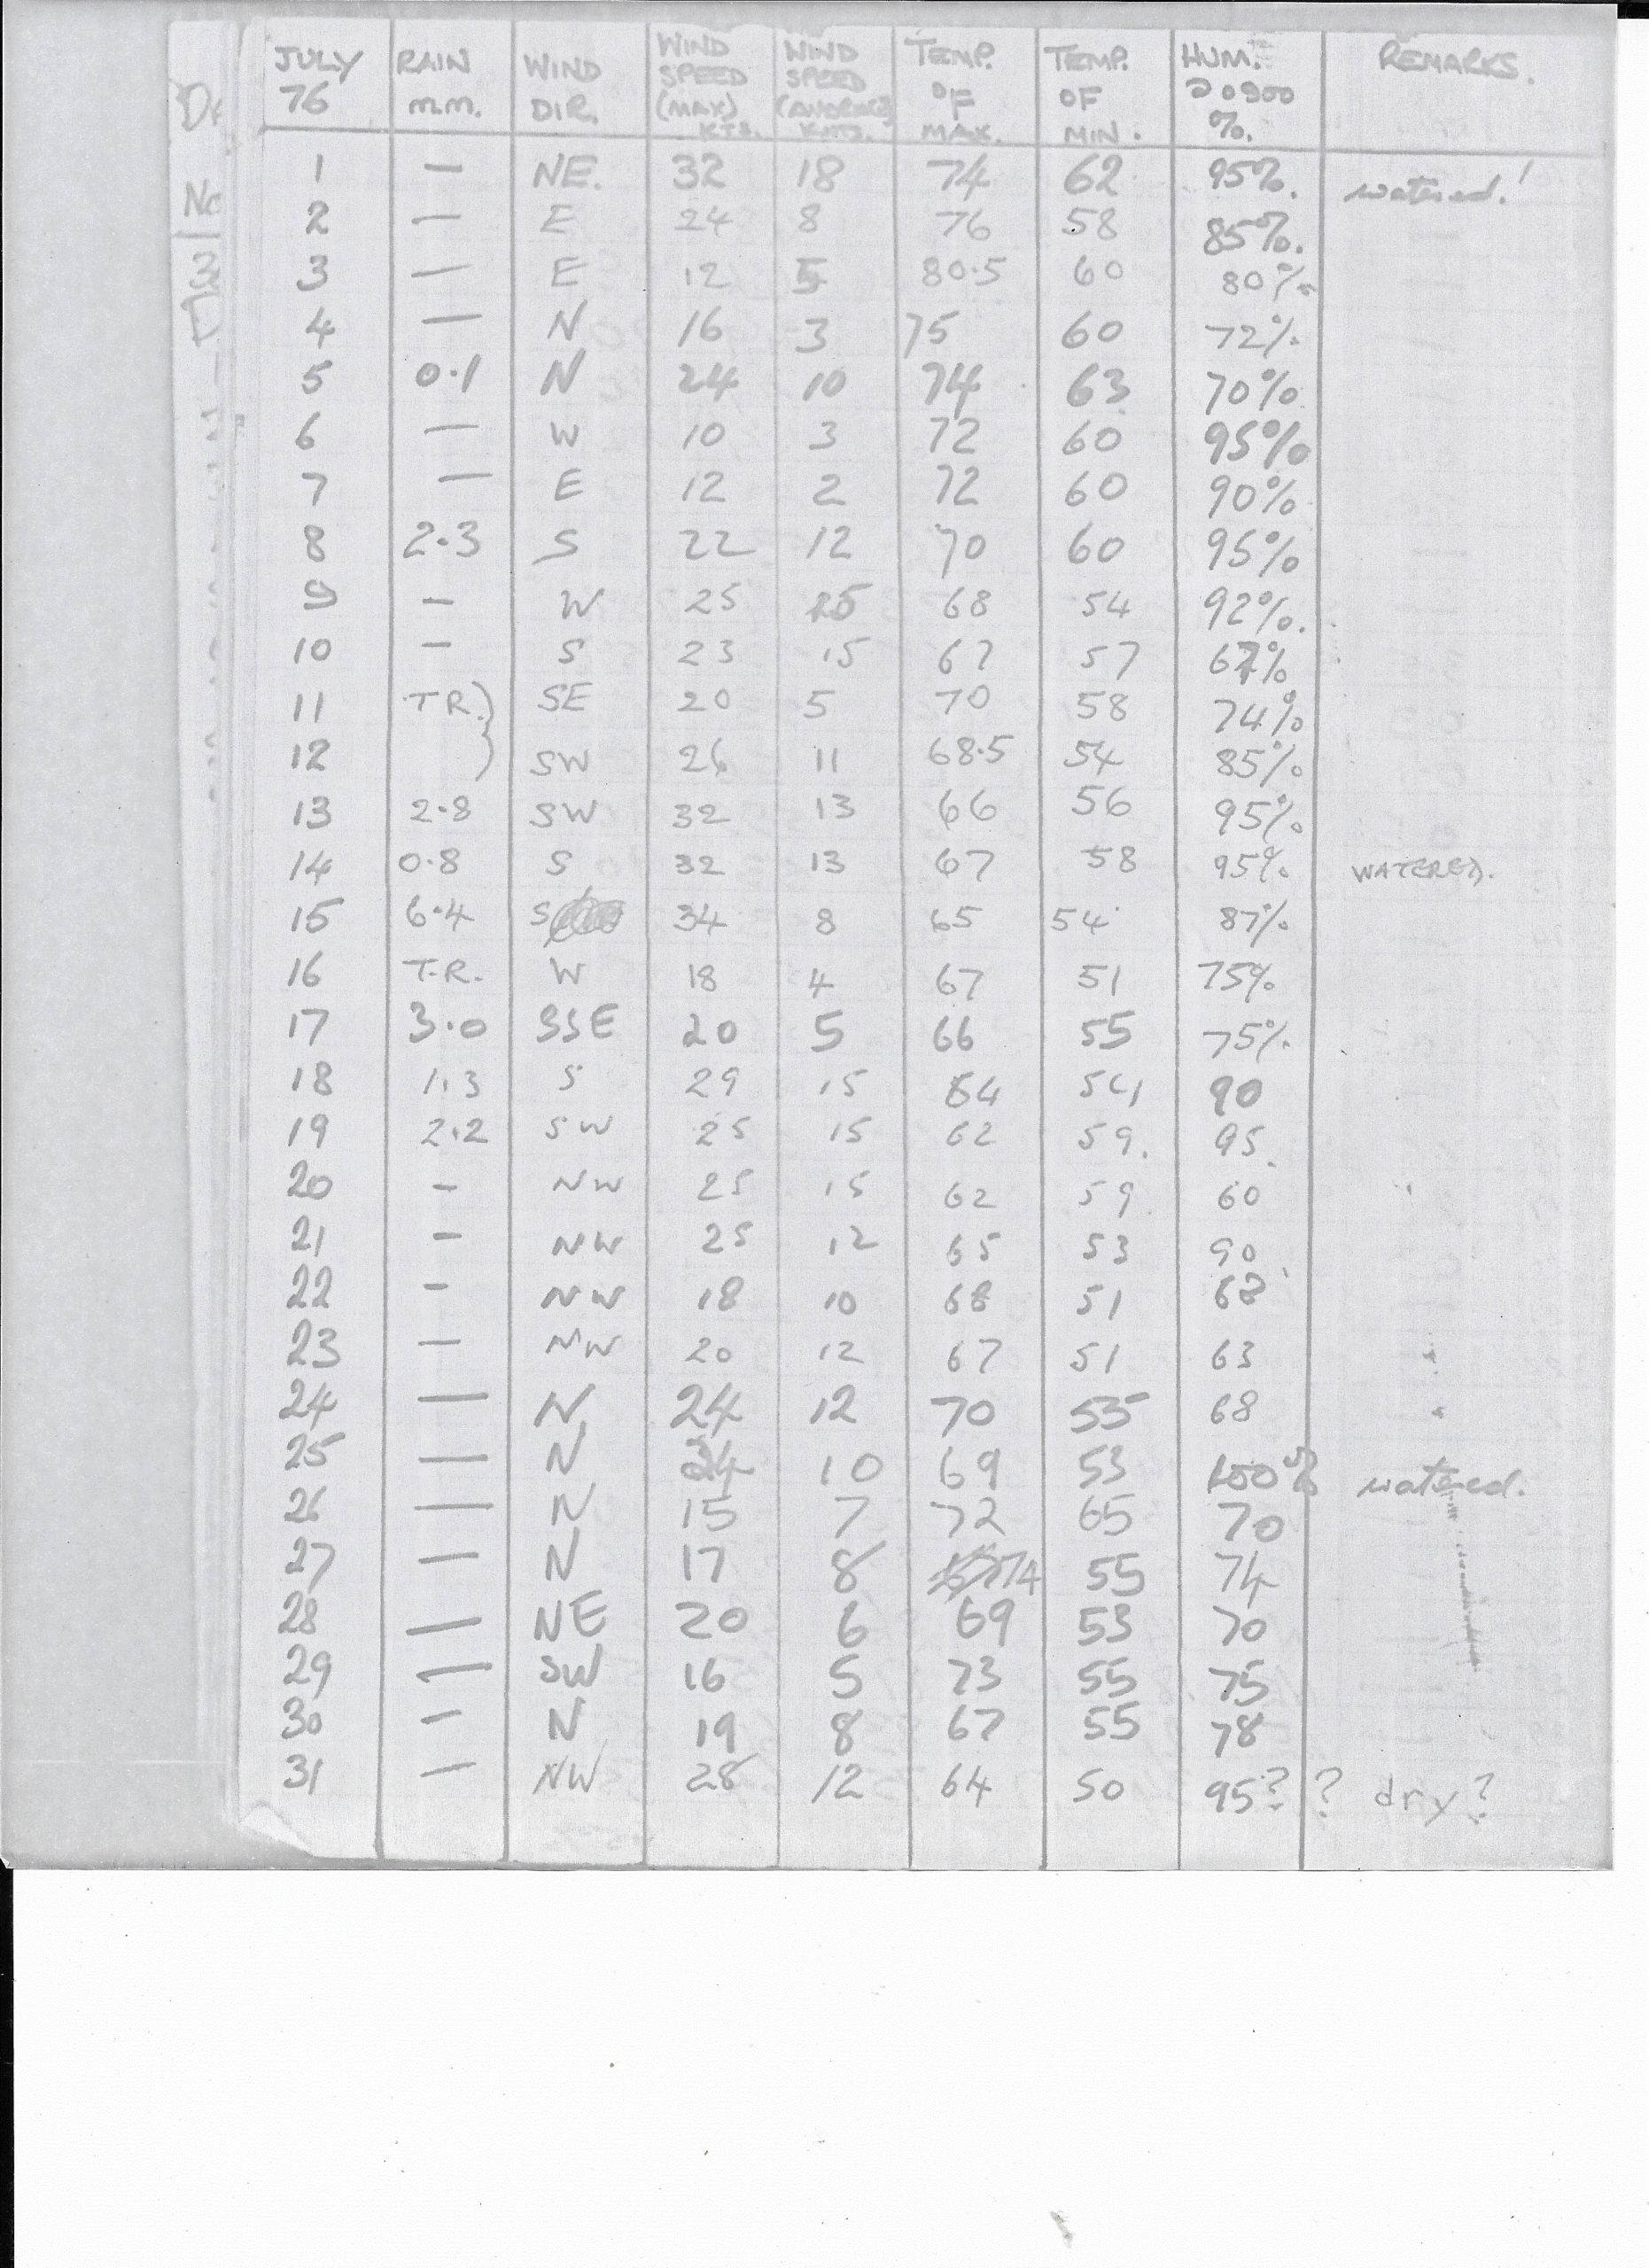 JULY 76 RAIN m.m. WIND DIR. WIND SPEED (MAX) KTS. WIND SPEED (AVERAGE) KNTS. TEMP. °F MAX. TEMP. °F MIN. HUM. @ 0900 %. REMARKS.
1 — NE. 32 18 74 62 95%. watered!
2 — E 24 8 76 58 85%.
3 — E 12 5 80.5 60 80%
4 — N 16 3 75 60 72%
5 0.1 N 24 10 74 63 70%
6 — W 10 3 72 60 95%
7 — E 12 2 72 60 90%
8 2.3 S 22 12 70 60 95%
9 — W 25 25 68 54 92%.
10 — S 23 15 67 57 67%
11 TR.) SE 20 5 70 58 74%
12 ) SW 26 11 68.5 54 85%
13 2.8 SW 32 13 66 56 95%
14 0.8 S 32 13 67 58 95% WATERED.
15 6.4 S 34 8 65 54 87%
16 T.R. W 18 4 67 51 75%
17 3.0 SSE 20 5 66 55 75%
18 1.3 S 29 15 64 54 90
19 2.2 SW 25 15 62 59. 95.
20 - NW 25 15 62 59 60
21 - NW 25 12 65 53 90
22 - NW 18 10 68 51 68
23 — NW 20 12 67 51 63
24 — N 24 12 70 55 68
25 — N 24 10 69 53 100% watered.
26 — N 15 7 72 65 70
27 — N 17 8 74 55 74
28 — NE 20 6 69 53 70
29 — SW 16 5 73 55 75
30 — N 19 8 67 55 78
31 — NW 28 12 64 50 95? ? dry?